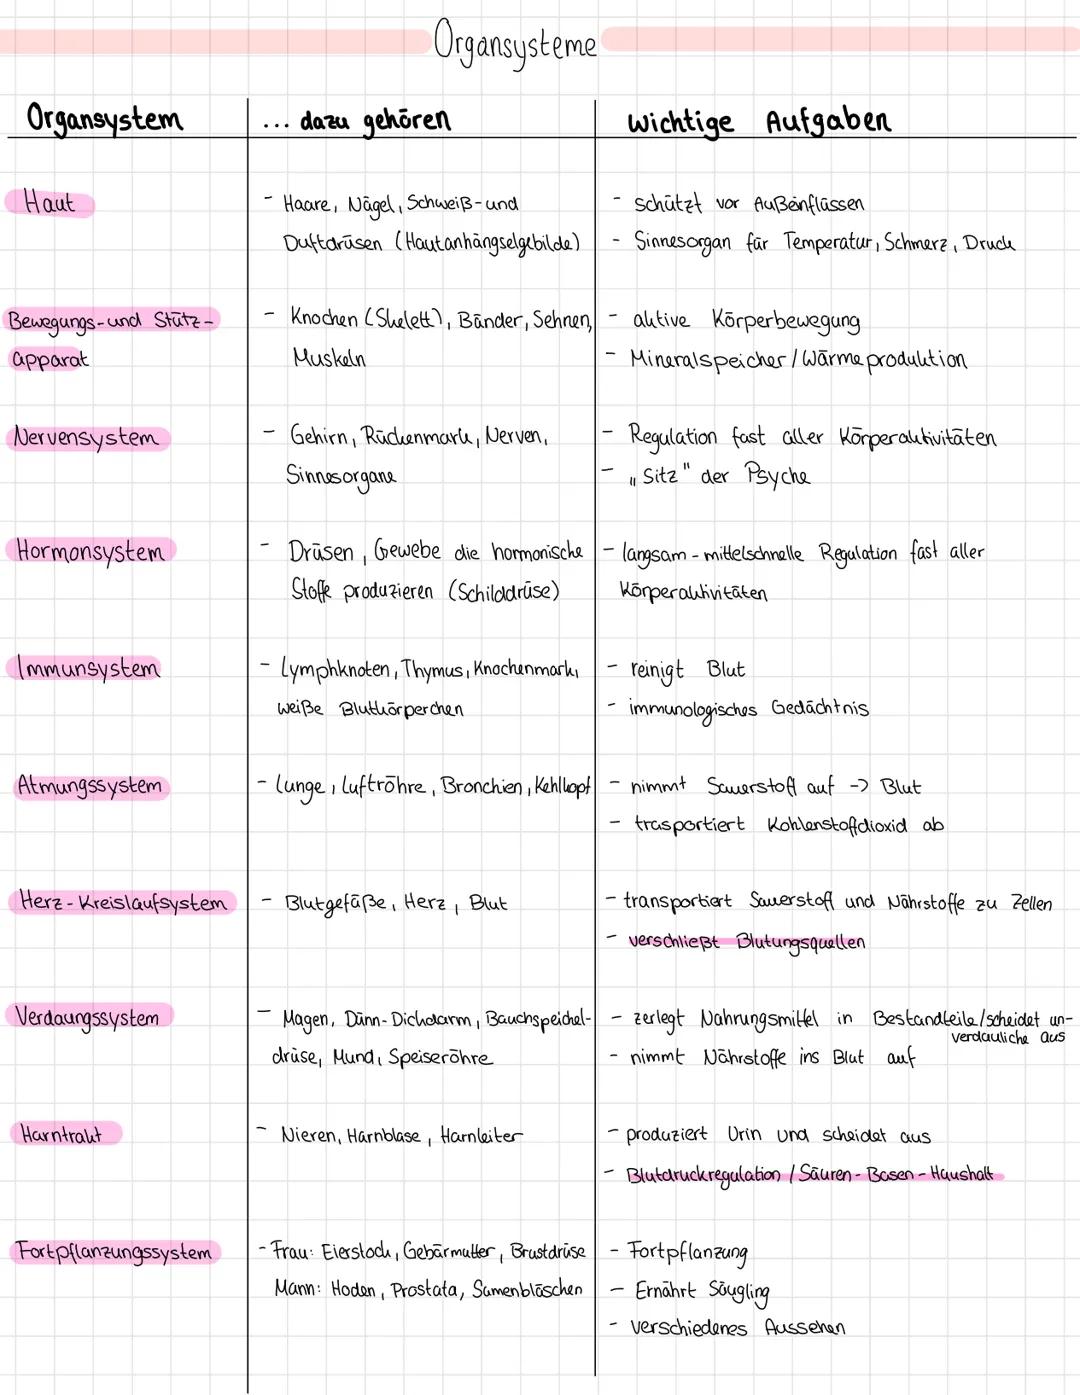 Organsysteme
Organsystem ... dazu gehören wichtige Aufgaben
Haut - Haare, Nägel, Schweiß-und - schützt vor Außeinflüssen
Duftdrüsen (Hautanhängselgebilde) - Sinnesorgan für Temperatur, Schmerz, Druck
Bewegungs-und Stütz- - Knochen (Skelett), Bänder, Sehnen, - aktive Körperbewegung
apparat Muskeln - Mineralspeicher / Wärmeproduktion
Nervensystem - Gehirn, Rückenmark, Nerven, - Regulation fast aller Körperaktivitäten
Sinnesorgane - „Sitz" der Psyche
Hormonsystem - Drüsen, Gewebe die hormonische - langsam - mittelschnelle Regulation fast aller
Stoffe produzieren (Schilddrüse) Körperaktivitäten
Immunsystem - Lymphknoten, Thymus, Knochenmark, - reinigt Blut
weiße Blutkörperchen - immunologisches Gedächtnis
Atmungssystem - Lunge, Luftröhre, Bronchien, Kehlkopf - nimmt Sauerstoff auf -> Blut
- trasportiert Kohlenstoffdioxid ab
Herz-Kreislaufsystem - Blutgefäße, Herz, Blut - transportiert Sauerstoff und Nährstoffe zu Zellen
- verschließt Blutungsquellen
Verdaungssystem - Magen, Dünn-Dickdarm, Bauchspeichel- - zerlegt Nahrungsmittel in Bestandteile/scheidet un-
verdauliche aus
drüse, Mund, Speiseröhre - nimmt Nährstoffe ins Blut auf
Harntrakt - Nieren, Harnblase, Harnleiter - produziert Urin und scheidet aus
- Blutdruckregulation / Säuren-Basen-Haushalt
Fortpflanzungssystem - Frau: Eierstock, Gebärmutter, Brustdrüse - Fortpflanzung
Mann: Hoden, Prostata, Samenbläschen - Ernährt Säugling
- verschiedenes Aussehen